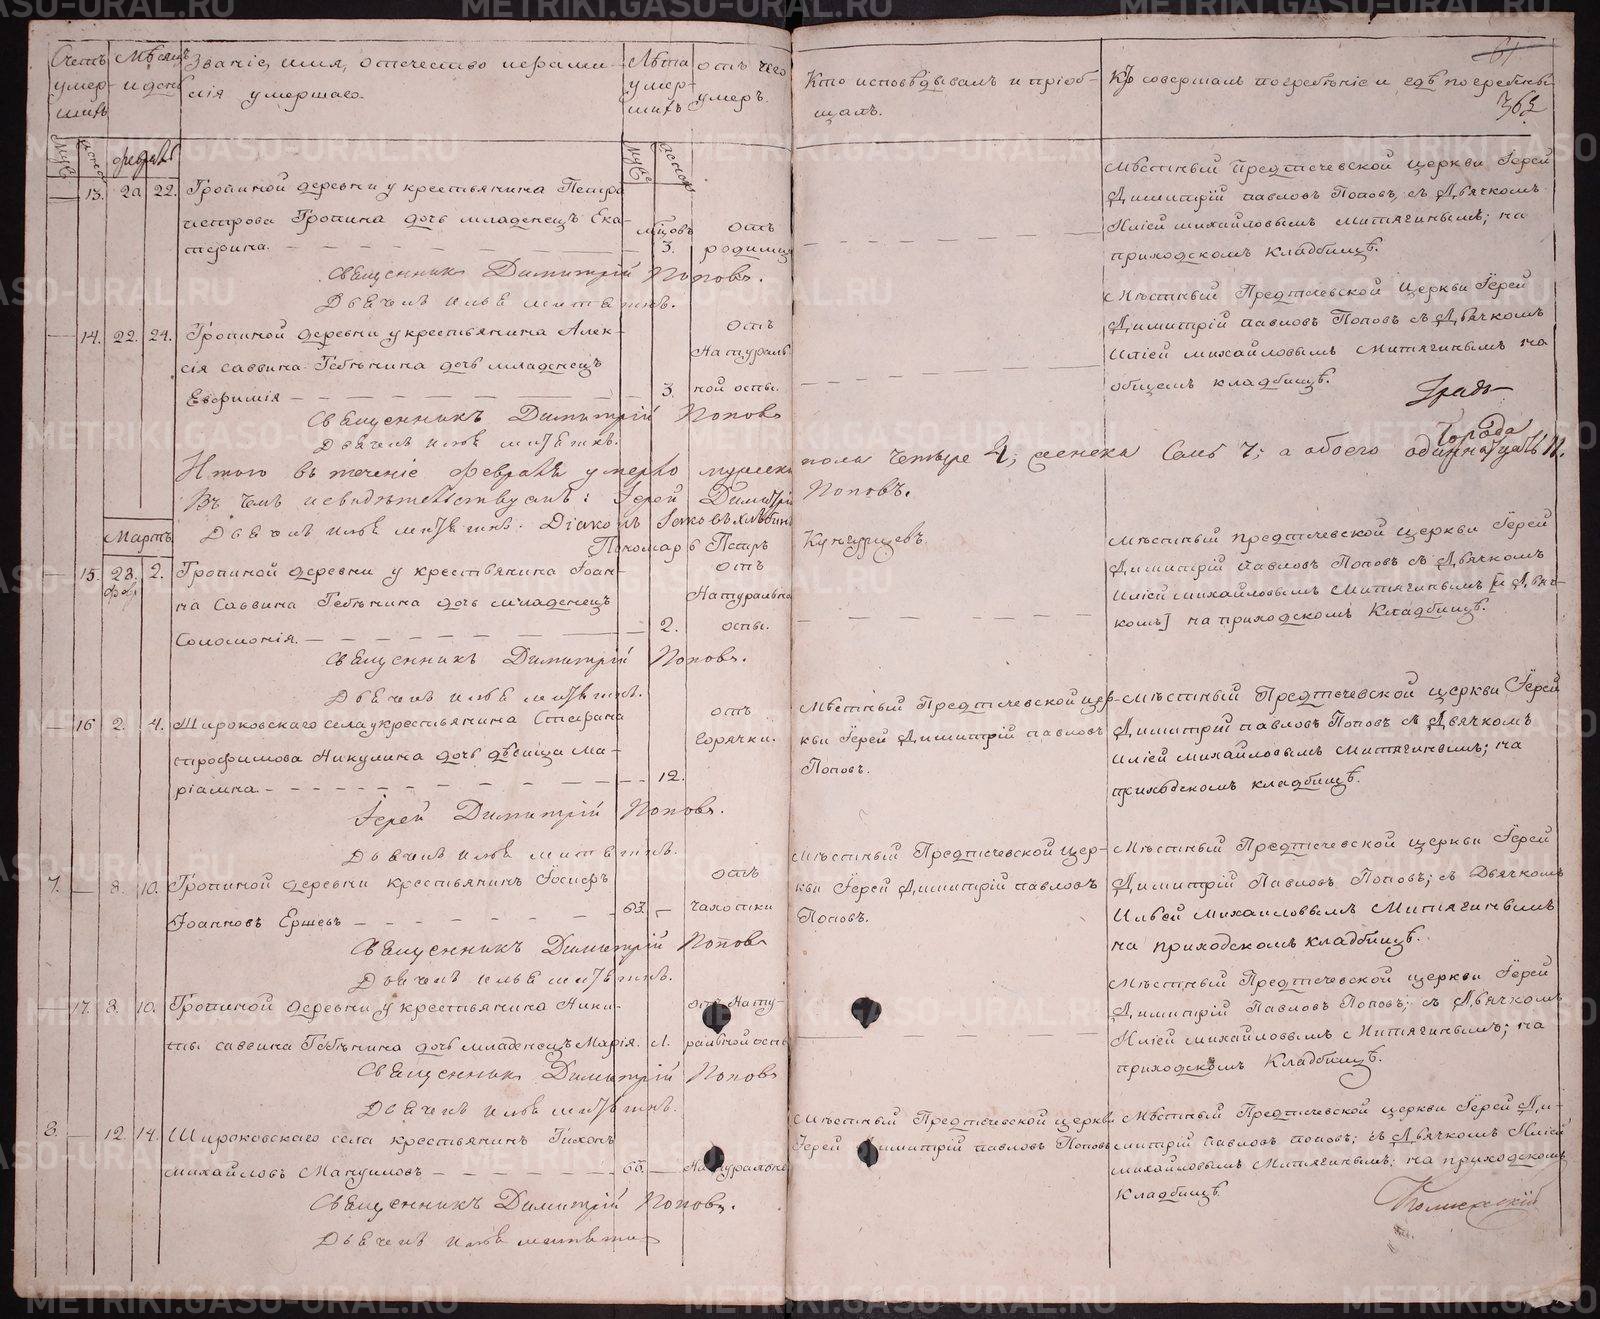 Счетъ умершихъ
Мѣсяцъ и день
Званіе, имя, отечество и фамилія умершаго.
Лѣта умершихъ
отъ чего умеръ.
Кто исповѣдывалъ и пріобщалъ.
Кто совершалъ погребеніе и гдѣ погребены
61
362
февраль
13. 20 22. Тропиной деревни у крестьянина Петра
петрова Тропина дочь младенецъ Ека-
терина.
мцовъ 3.
отъ родимца
Мѣстный Предтечевской церкви Іерей
Димитрій павловъ Поповъ, съ Дьячкомъ
Иліей михайловымъ митягинымъ; на
приходскомъ кладбищѣ.
Священникъ Димитрій Поповъ.
Дьячекъ Илья митягинъ.
14. 22. 24. Тропиной деревни у крестьянина Алек-
сія саввина Гебѣнина дочь младенецъ
Евфимія
3.
отъ
Натураль
ной оспы.
Мѣстный Предтечевской Церкви Іерей
Димитрій павловъ Поповъ съ Дьячкомъ
Иліей михайловымъ Митягинымъ на
общемъ кладбищѣ.
Священникъ Димитрій Поповъ
Дьячекъ Илья митягинъ.
Градъ
Города
Итого въ теченіе февраля умерло мужеска пола четыре 4; женска семь 7; а обоего одиннадцать 11.
Въ чемъ и свидѣтельствуемъ: Іерей Димитрій Поповъ.
Дьячекъ Илья митягинъ. Діаконъ Іаковъ хлѣбинъ
Пономарь Петръ Кунгурцевъ.
Мартъ.
15. 23. февр. 2. Тропиной деревни у крестьянина Іоан-
на Саввина Гебѣнина дочь младенецъ
Соломонія.
2.
отъ
Натуральной
оспы.
Мѣстный предтечевской церкви Іерей
Димитрій Павловъ Поповъ съ Дьячкомъ
Иліей михайловымъ Митягинымъ [и Дьяч-
комъ] на приходскомъ Кладбищѣ.
Священникъ Димитрій Поповъ.
Дьячекъ Илья митягинъ.
16 2. 4. Широковскаго села у крестьянина Стефана
трофимова Никулина дочь дѣвица Ма-
ріамна.
12.
отъ
горячки.
Мѣстный Предтечевской цер-
кви Іерей Димитрій павловъ
Поповъ.
Мѣстный Предтечевской церкви Іерей
Димитрій павловъ Поповъ съ Дьячкомъ
Иліей михайловымъ Митягинымъ; на
приходскомъ кладбищѣ.
Іерей Димитрій Поповъ.
Дьячекъ Илья митягинъ.
7. 8. 10. Тропиной деревни крестьянинъ Іосифъ
Іоанновъ Ершевъ
63.
отъ
чахотки
Мѣстный Предтечевской цер-
кви Іерей Димитрій павловъ
Поповъ.
Мѣстный Предтечевской церкви Іерей
Димитрій Павловъ Поповъ; съ Дьячкомъ
Ильей Михайловымъ Митягинымъ
на приходскомъ кладбищѣ.
Священникъ Димитрій Поповъ
Дьячекъ Илья митягинъ.
17. 8. 10. Тропиной деревни у крестьянина Ники-
ты саввина Гебѣнина дочь младенецъ Марія.
1.
отъ Нату-
ральной оспы
Мѣстный Предтечевской церкви Іерей
Димитрій Павловъ Поповъ; съ Дьячкомъ
Иліей михайловымъ Митягинымъ; на
приходскомъ Кладбищѣ.
Священникъ Димитрій Поповъ
Дьячекъ Илья митягинъ.
8. 12. 14. Широковскаго села крестьянинъ Тихонъ
михайловъ Мануиловъ
66.
Натурально
Мѣстный Предтечевской церкви
Іерей Димитрій павловъ Поповъ
Мѣстный Предтечевской церкви Іерей Ди-
митрій Павловъ поповъ; съ Дьячкомъ Иліей
михайловымъ Митягинымъ; на приходскомъ
Кладбищѣ.
Священникъ Димитрій Поповъ.
Дьячекъ Илья митягинъ
METRIKI.GASO-URAL.RU